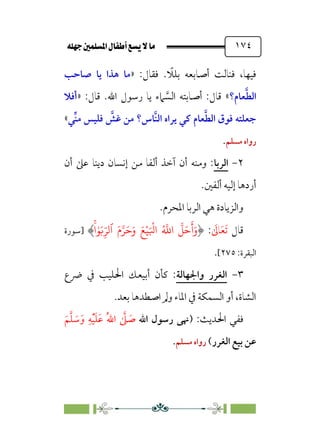 ١٧٤
ما لا يسع أطفال المسلمين جهله
فيها، فنالت أصابعه بللًا. فقال: «ما هذا يا صاحب
الطَّعام؟» قال: أصابته السَّماء يا رسول الله. قال: «أفلا
جعلته فوق الطَّعام كي يراه النَّاس؟ من غشَّ فليس منِّي»
رواه مسلم.
٢- الربا: ومنه أن آخذ ألفا من إنسان دينا على أن
أردها إليه ألفين.
والزيادة هي الربا المحرم.
قال تَعَالَىٰ: ﴿وَأَحَلَّ اللَّهُ الْبَيْعَ وَحَرَّمَ الرِّبَوٰا﴾ [سورة
البقرة: ٢٧٥].
٣- الغرر والجهالة: كأن أبيعك الحليب في ضرع
الشاة، أو السمكة في الماء ولم اصطدها بعد.
ففي الحديث: (نهى رسول الله صَلَّى اللَّهُ عَلَيْهِ وَسَلَّمَ
عن بيع الغرر) رواه مسلم.